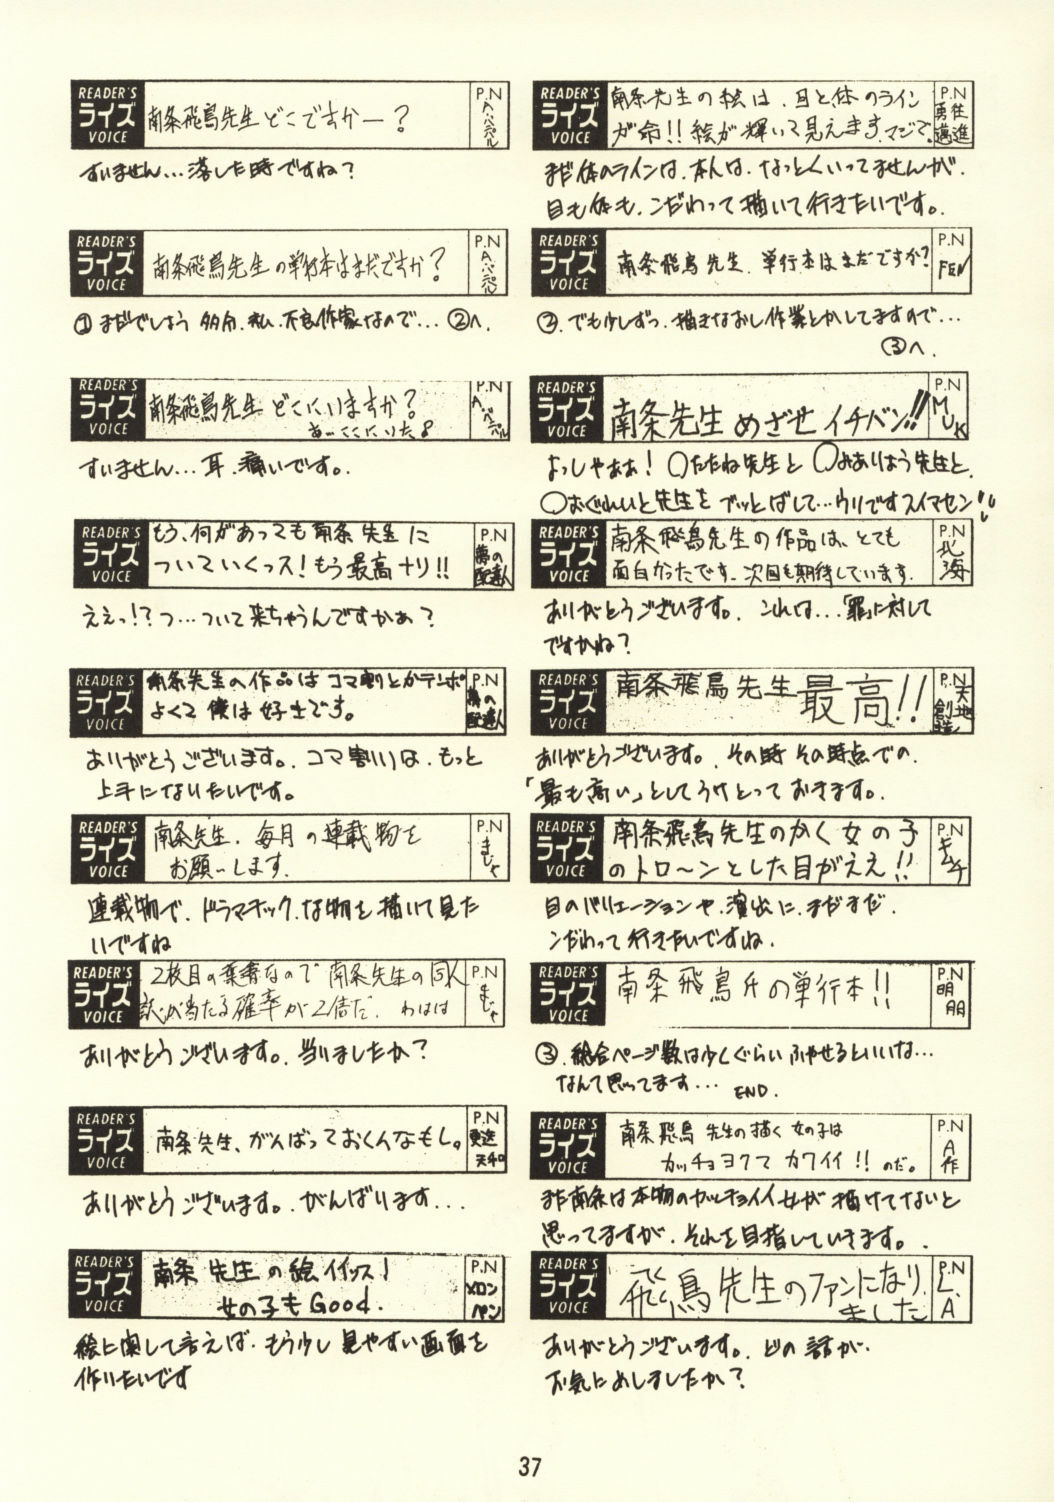 READER'S
ライズ
VOICE
南条飛鳥先生どこですかー?
P.N
A.ペニペル
すいません…落した時ですね?
READER'S
ライズ
VOICE
南条飛鳥先生の単行本はまだですか?
P.N
①まだでしょう 多分、私、不良作家なので… ②へ.
READER'S
ライズ
VOICE
南条飛鳥先生 どこにいますか?
あ、ここにいた
P.N
すいません…耳、痛いです。
READER'S
ライズ
VOICE
もう、何があっても南条先生に
ついていくっス!もう最高ナリ!!
P.N
夢の
配達人
ええっ!?つ…ついて来ちゃうんですかぁ?
READER'S
ライズ
VOICE
南条先生の作品はコマ割とかテンポ
よくて僕は好きです。
P.N
夢の
配達人
ありがとうございます。コマ割りは、もっと
上手になりたいです。
READER'S
ライズ
VOICE
南条先生、毎月の連載物を
お願いします.
P.N
まじゃ
連載物で、ドラマチックな物を描いて見た
いですね
READER'S
ライズ
VOICE
2枚目の葉書なので南条先生の同人
誌が当たる確率が2倍だ. わはは
P.N
まじゃ
ありがとうございます。当りましたか?
READER'S
ライズ
VOICE
南条先生、がんばっておくんなもし。
P.N
ありがとうございます。がんばります…
READER'S
ライズ
VOICE
南条先生の絵イイッス!
女の子もGood.
P.N
メロン
ペン
絵に関して言えば、もう少し見やすい画面を
作りたいです
READER'S
ライズ
VOICE
南条先生の絵は、目と体のライン
が命!!絵が輝いて見えます、マジで。
P.N
勇往
邁進
まだ体のラインは、本人は、なっとくいってませんが、
目も体も、こだわって描いて行きたいです。
READER'S
ライズ
VOICE
南条飛鳥先生、単行本はまだですか?
P.N
FEN
②、でも少しずつ、描きなおし作業とかしてますので…
③へ.
READER'S
ライズ
VOICE
南条先生 めざせイチバン!!
P.N
MUK
よっしゃぁぁ!○たたね先生と○みありほう先生と、
○おぐれいと先生をブッとばして…ウソですスイマセン!!
READER'S
ライズ
VOICE
南条飛鳥先生の作品は、とても
面白かったです。次回も期待しています.
P.N
北海
ありがとうございます。これは…「罪」に対して
ですかね?
READER'S
ライズ
VOICE
南条飛鳥先生最高!!
P.N
天地
創造
ありがとうございます。その時その時点での、
「最も高い」としてうけとっておきます。
READER'S
ライズ
VOICE
南条飛鳥先生のかく女の子
のトロ〜ンとした目がええ!!
P.N
キムチ
目のバリエーションや、演出に、まだまだ、
こだわって行きたいですね.
READER'S
ライズ
VOICE
南条飛鳥氏の単行本!!
P.N
③、総合ページ数は少くぐらいふやせるといいな…
なんて思ってます… END.
READER'S
ライズ
VOICE
南条飛鳥 先生の描く女の子は
カッチョヨクてカワイイ!!のだ。
P.N
A作
まだ南条は本物のカッチョイイ女が描けてないと
思ってますが、それを目指していきます。
READER'S
ライズ
VOICE
飛鳥先生のファンになり
ました
P.N
L.A
ありがとうございます。どの話が、
お気にめしましたか?
37